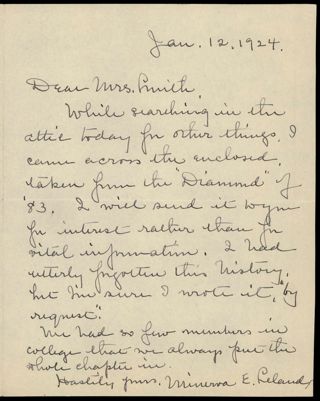 Jan. 12, 1924.
Dear Mrs. Smith,
While searching in the
attic today for other things, I
came across the enclosed,
taken from the "Diamond" of
'83. I will send it to you
for interest rather than for
vital information. I had
utterly forgotten this history,
but I'm sure I wrote it, "by
request".
We had so few members in
college that we always put the
whole chapter in.
Hastily yours, Minerva E. Leland,